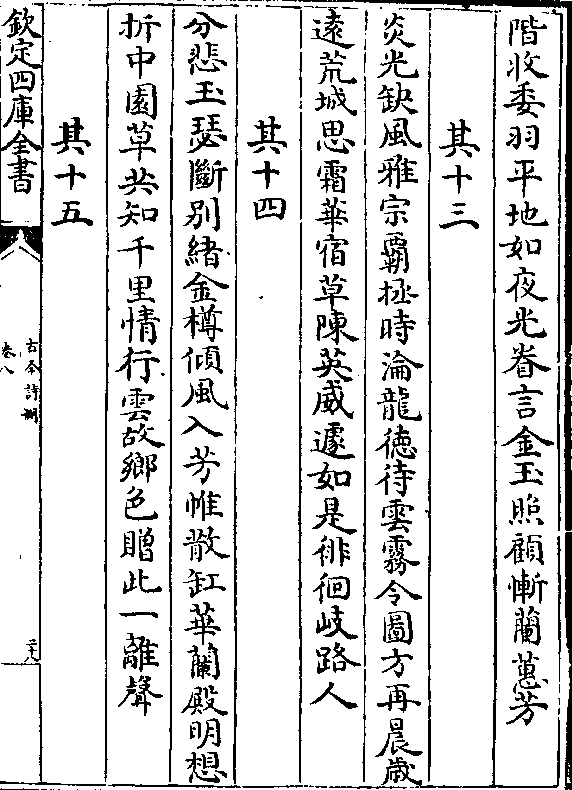 階收委羽平地如夜光眷言金玉照顧慚蘭蕙芳
其十三
炎光缺風雅宗霸拯時淪龍德待雲霧令圖方再晨歲
遠荒城思霜華宿草陳英威遽如是徘徊岐路人
其十四
分悲玉瑟斷別緒金樽傾風入芳帷散缸華蘭殿明想
折中園草共知千里情行雲故鄉色贈此一離聲
其十五
欽定四庫全書
古今詩刪
卷八
二十九